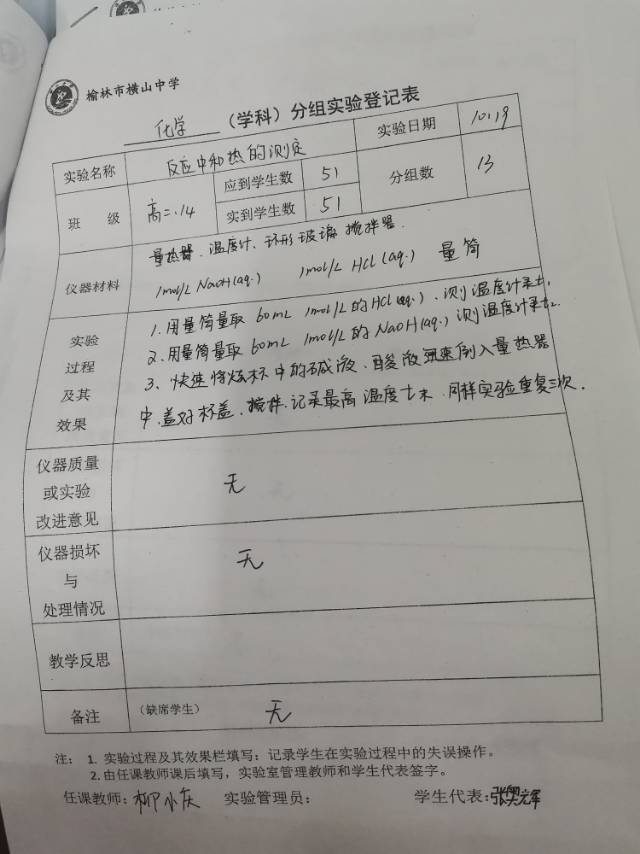 榆林市横山中学
化学 （学科）分组实验登记表
实验名称 反应中和热的测定 实验日期 10.19
班 级 高二.14 应到学生数 51 分组数 13
实到学生数 51
仪器材料 量热器、温度计、环形玻璃搅拌器
1mol/L NaOH(aq.) 1mol/L HCl(aq.) 量筒
实验过程及其效果
1.用量筒量取 60mL 1mol/L的HCl(aq.)、测温度计录t1
2.用量筒量取 60mL 1mol/L的NaOH(aq.)测温度计录t2
3、快速将烧杯中的碱液、酸液迅速倒入量热器
中.盖好杯盖、搅拌.记录最高温度t末.同样实验重复三次.
仪器质量
或实验
改进意见
无
仪器损坏
与
处理情况
无
教学反思
备注 (缺席学生) 无
注： 1. 实验过程及其效果栏填写：记录学生在实验过程中的失误操作。
2.由任课教师课后填写，实验室管理教师和学生代表签字。
任课教师： 柳小庆 实验管理员： 学生代表：